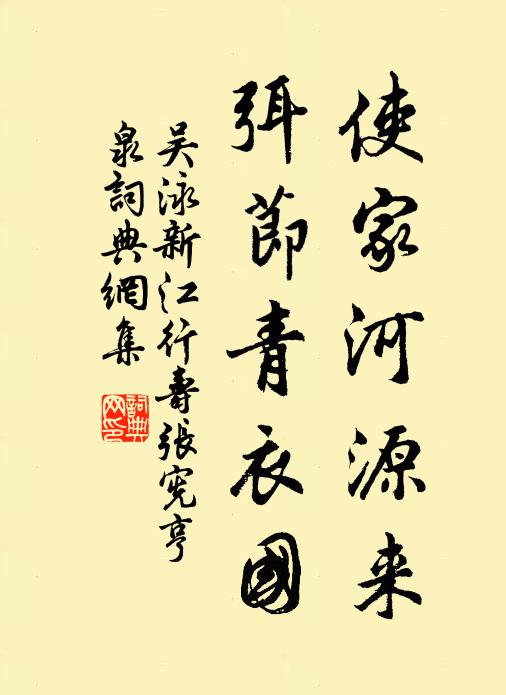 使家河源来
弭節青衣國
吴泳新江行壽張憲亨
泉詞典網集
詞典网印